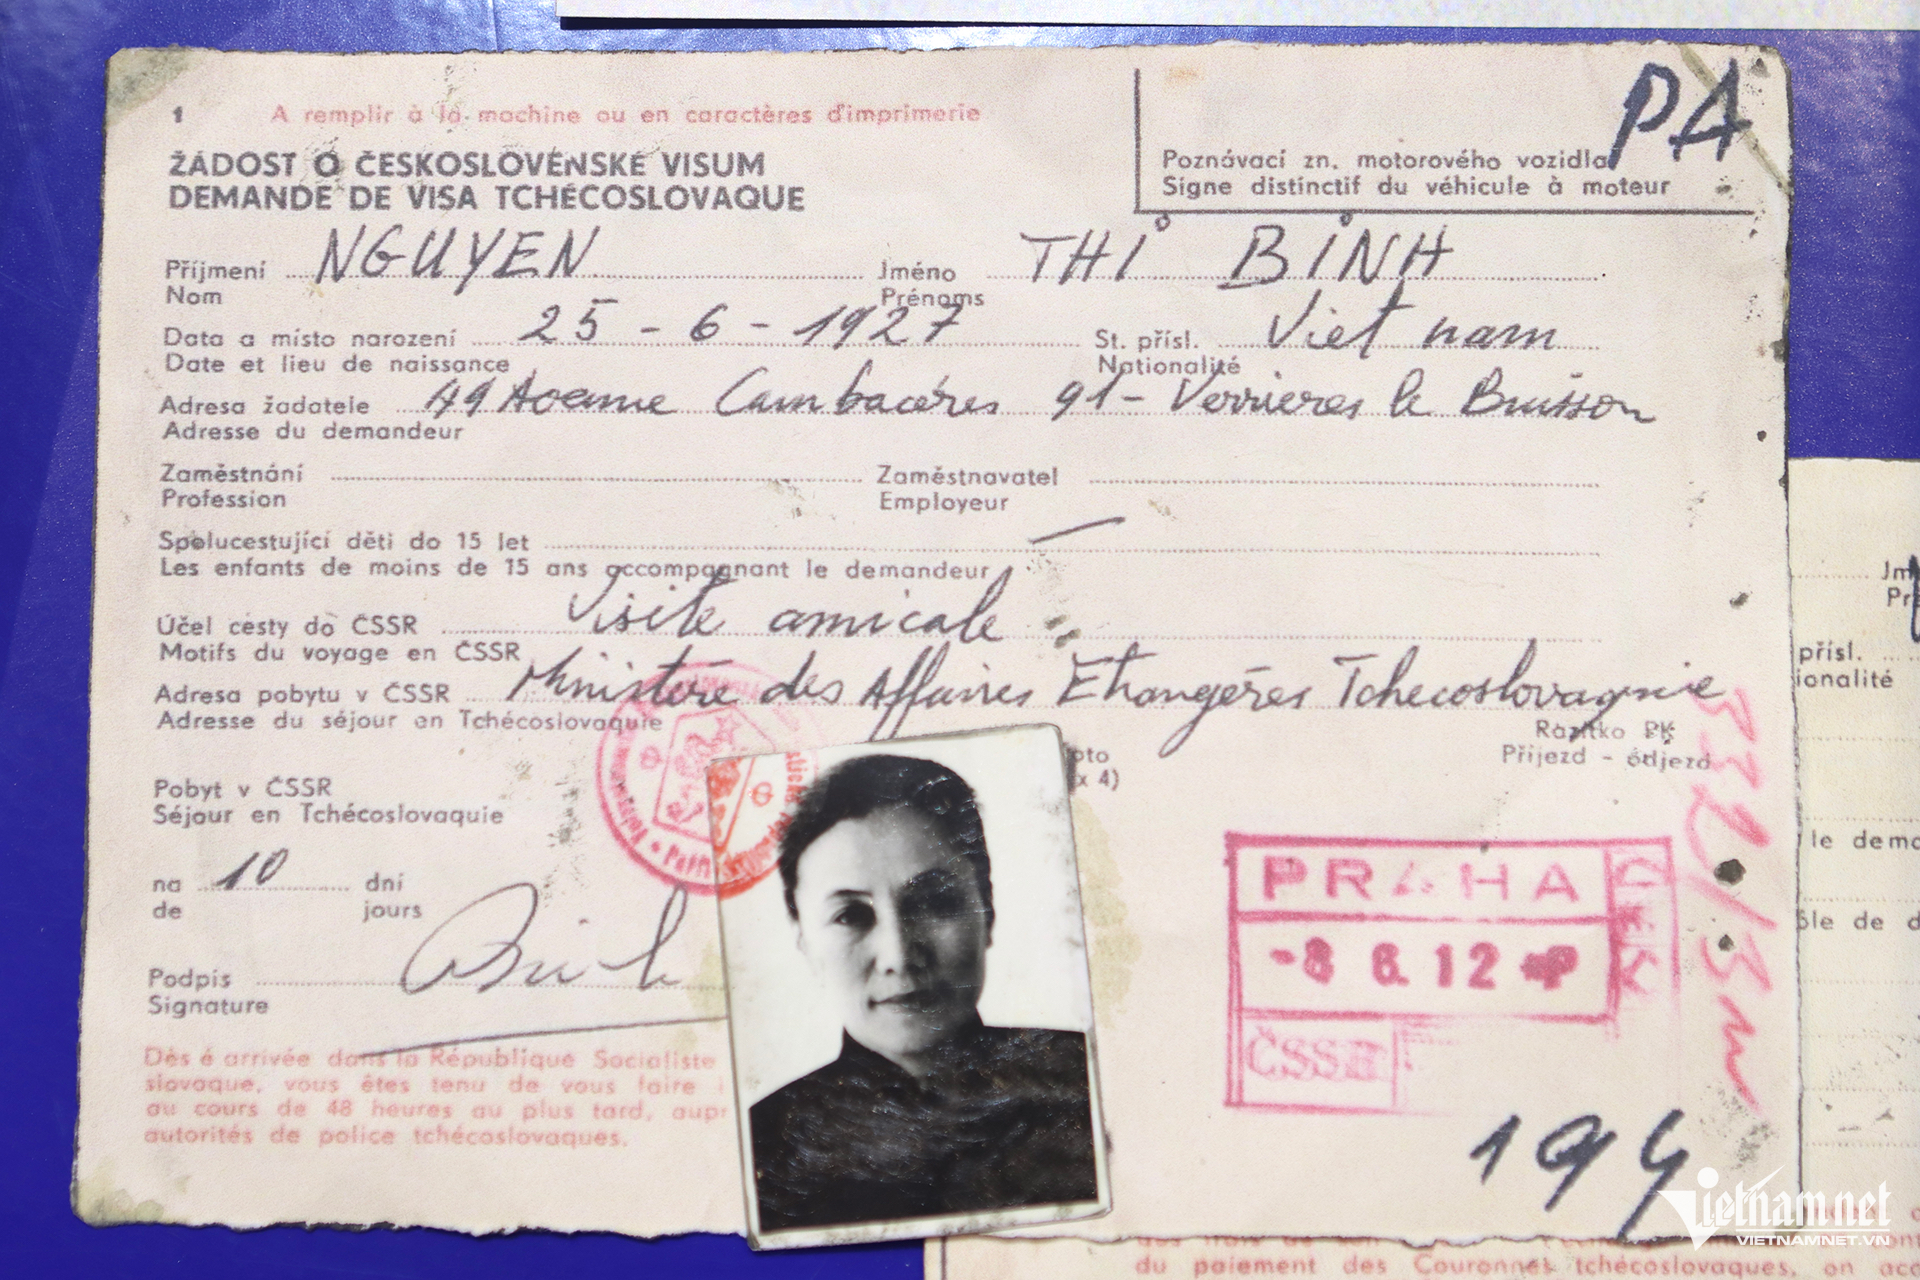 1 A remplir à la machine ou en caractères d'imprimerie
PA
ŽÁDOST O ČESKOSLOVENSKÉ VISUM
DEMANDE DE VISA TCHÉCOSLOVAQUE
Poznávací zn. motorového vozidla
Signe distinctif du véhicule à moteur
Příjmení NGUYEN Jméno THỈ BỈNH
Nom Prénoms
Data a místo narození 25-6-1927 St. přísl. Việt nam
Date et lieu de naissance Nationalité
Adresa žadatele 49 Avenue Cambacérès 91- Verrieres le Buisson
Adresse du demandeur
Zaměstnání Zaměstnavatel
Profession Employeur
Spolucestující děti do 15 let —
Les enfants de moins de 15 ans accompagnant le demandeur
Účel cesty do ČSSR Visite amicale
Motifs du voyage en ČSSR
Adresa pobytu v ČSSR Ministère des Affaires Etrangères Tchecoslovaquie
Adresse du séjour en Tchécoslovaquie
Razítko PK
Příjezd - odjezd
oto
x 4)
Pobyt v ČSSR
Séjour en Tchécoslovaquie
na 10 dní
de jours
Podpis Binh
Signature
PRAHA
ČSSR
Dès é arrivée dans la République Socialiste
slovaque, vous êtes tenu de vous faire
au cours de 48 heures au plus tard, aupr
autorités de police tchécoslovaques.
Jm
Pr
přísl.
ionalité
le dem
ôle de d
Vietnam.net
VIETNAMNET.VN
du paiement des Couronnes tchécoslovaques, on acc